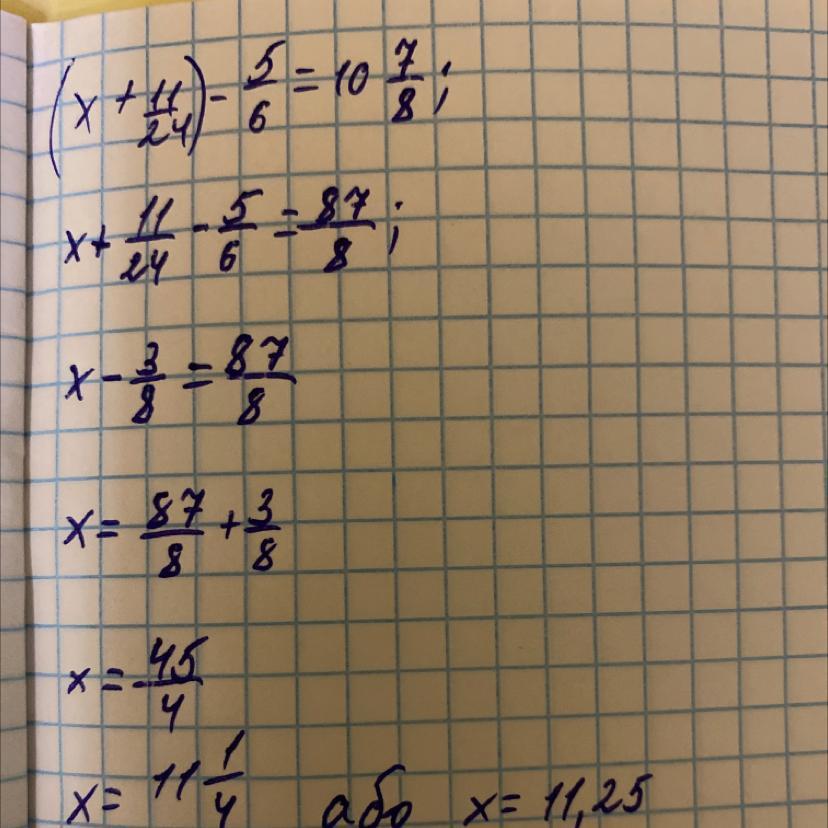 (x + 11/24) - 5/6 = 10 7/8;
x + 11/24 - 5/6 = 87/8;
x - 3/8 = 87/8
x = 87/8 + 3/8
x = 45/4
x = 11 1/4 або x = 11,25